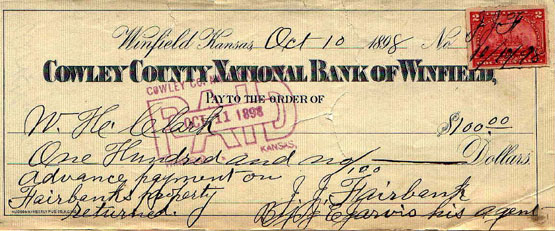 Winfield Kansas, Oct 10 1898 No.
COWLEY COUNTY NATIONAL BANK OF WINFIELD,
COWLEY CO
PAID
OCT 11 1898
KANSAS.
PAY TO THE ORDER OF
W. H. Clark $100.00
One Hundred and no/100 Dollars
Advance payment on
Fairbanks property
returned.
J. J. Fairbank
By J E Jarvis his agent
2 2